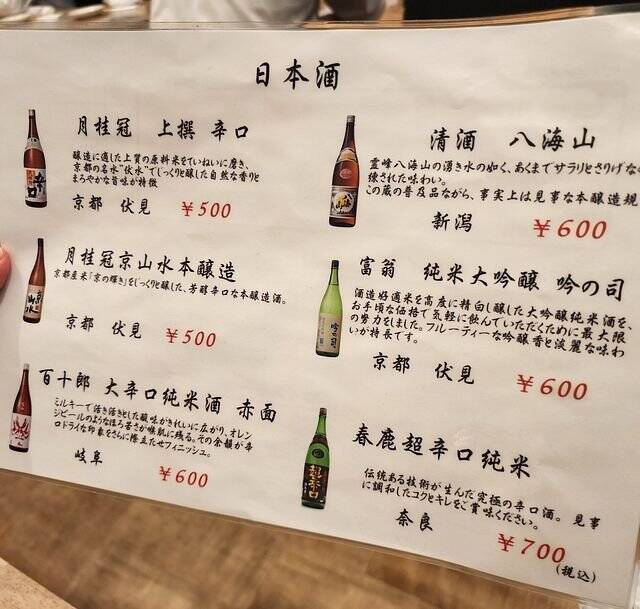 日本酒
月桂冠 上撰 辛口
醸造に適した上質の原料米をていねいに磨き、
京都の名水"伏水"でじっくりと醸した自然な香りと
まろやかな旨味が特徴
京都 伏見 ￥500
月桂冠京山水本醸造
京都産米「京の輝き」をじっくりと醸した、芳醇辛口な本醸造酒。
京都 伏見 ￥500
百十郎 大辛口純米酒 赤面
ミルキーで活き活きとした酸味がきれいに広がり、オレン
ジピールのようなほろ苦さが喉肌に残る。その余韻が辛
口ドライな印象をさらに際立たせフィニッシュ。
岐阜 ￥600
清酒 八海山
霊峰八海山の湧き水の如く、あくまでサラリとさりげな
練された味わい。
この蔵の普及品ながら、事実上は見事な本醸造規
新潟 ￥600
富翁 純米大吟醸 吟の司
酒造好適米を高度に精白し醸した大吟醸純米酒を、
お手頃な価格で気軽に飲んでいただくために最大限
の努力をしました。フルーティーな吟醸香と淡麗な味わ
いが特長です。
京都 伏見 ￥600
春鹿超辛口純米
伝統ある技術が生んだ究極の辛口酒。 見事
に調和したコクとキレをご賞味ください。
奈良 ￥700
(税込)